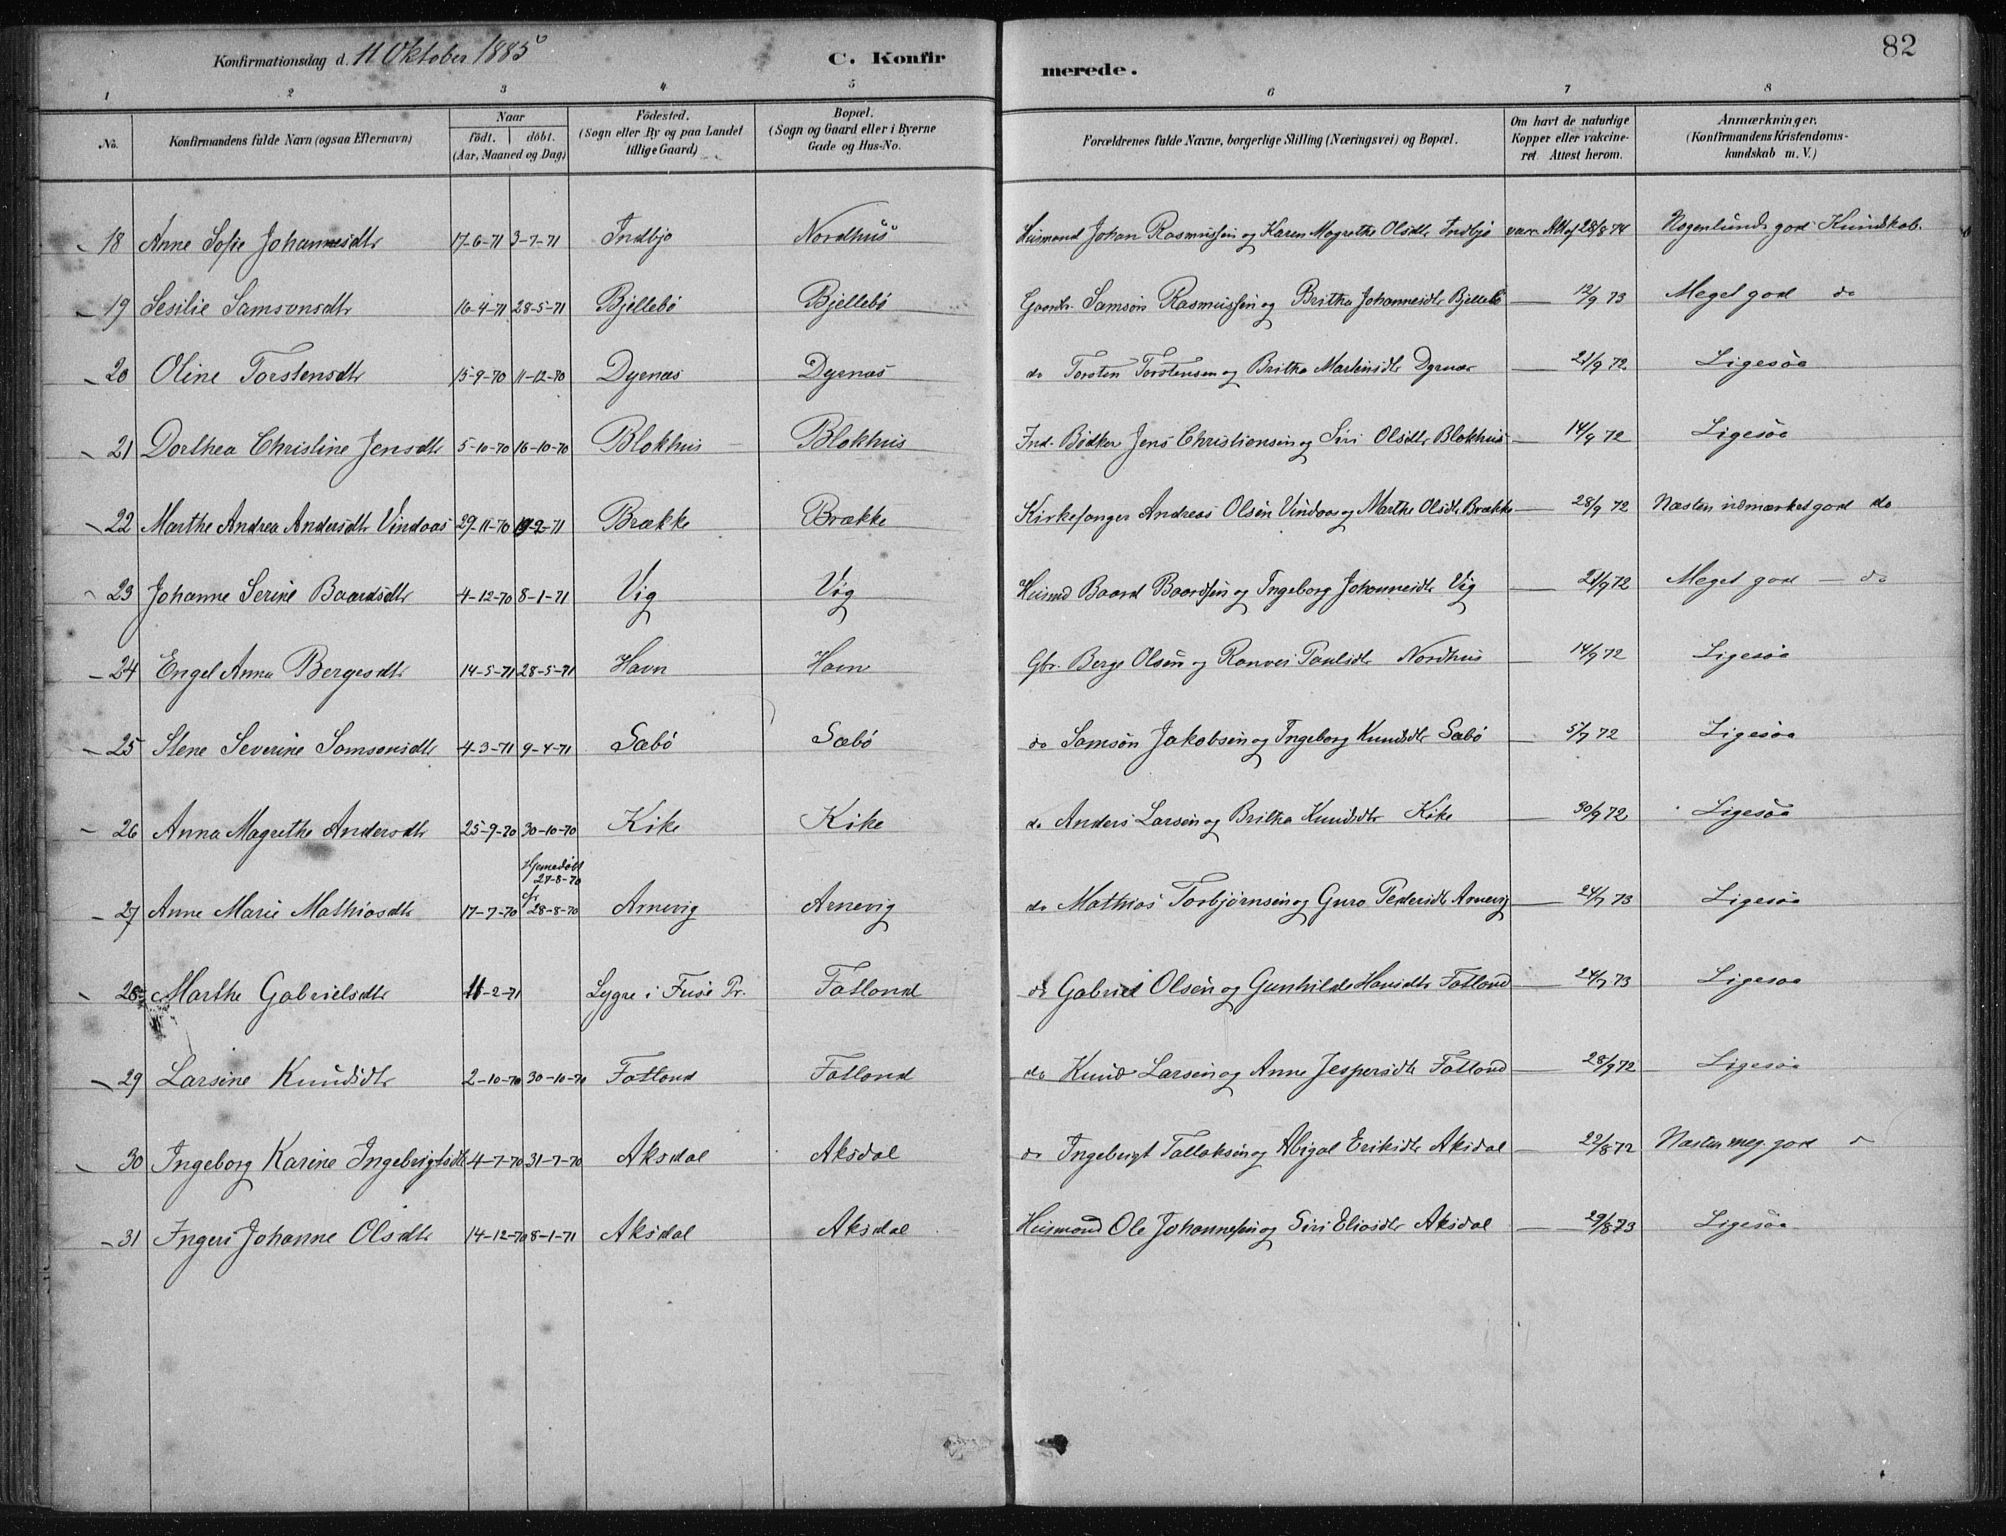 82
Konfirmationsdag d. 11 Oktober 1885
C. Konfirmerede.
1 2 3 4 5 6 7 8
No. Konfirmandens fulde Navn (ogsaa Efternavn) Naar födt. döbt. (Aar, Maaned og Dag) Födested. (Sogn eller By og paa Landet tillige Gaard) Bopæl. (Sogn og Gaard eller i Byerne Gade og Hus-No. Forældrenes fulde Navne, borgerlige Stilling (Næringsvei) og Bopæl. Om havt de naturlige Kopper eller vakcineret. Attest herom. Anmærkninger. (Konfirmandens Kristendomskundskab m. V.)
18 Anne Sofie Johannesdtr 17-6-71 3-7-71 Indbjo Nordhus Husmand Johan Rasmussen og Karen Magrethe Olsdtr Indbjo vacc. Att af 28/8 74 Nogenlunde god Kundskab.
19 Sesilie Samsonsdtr 16-4-71 28-5-71 Bjellebö Bjellebö Gaardbr. Samson Rasmussen og Britha Johannesdtr Bjellebö — 12/9 73 Meget god do
20 Oline Torstensdtr 15-9-70 11-12-70 Dyrnæs Dyrnæs do Torsten Torstensen og Britha Martinsdtr Dyrnæs — 21/9 72 Ligesaa
21 Dorthea Christine Jensdtr 5-10-70 16-10-70 Blokhus Blokhus Ind. Bödker Jens Christiansen og Siri Olsdtr Blokhus — 14/9 72 Ligesaa
22 Marthe Andrea Andersdtr Vindaas 29-11-70 19-2-71 Brække Brække Kirkesanger Andreas Olsen Vindaas og Marthe Olsdtr Brække — 28/9 72 Næsten udmærket god do
23 Johanne Serine Baardsdtr 4-12-70 8-1-71 Vig Vig Husmd Baard Baardsen og Ingeborg Johannesdtr Vig — 21/9 72 Meget god — do
24 Engel Anna Bergesdtr 14-5-71 28-5-71 Havn Havn Gbr. Berge Olsen og Ranvei Paulsdtr Nordhus — 14/9 72 Ligesaa
25 Stene Severine Samsonsdtr 4-3-71 9-4-71 Sæbö Sæbö do Samson Jakobsen og Ingeborg Knudsdtr Sæbö — 5/7 72 Ligesaa
26 Anna Magrethe Andersdtr 25-9-70 30-10-70 Kike Kike do Anders Larsen og Britha Knudsdtr Kike — 30/9 72 Ligesaa
27 Anne Marie Mathiasdtr 17-7-70 Hjemedöbt 27-8-70 28-8-70 Arnevig Arnevig do Mathias Torbjørnsen og Guro Pedersdtr Arnevig — 24/7 73 Ligesaa
28 Marthe Gabrielsdtr 11-2-71 Lygre i Fuse Pr. Fatland do Gabriel Olsen og Gunhilde Hansdtr Fatland — 24/7 73 Ligesaa
29 Larsine Knudsdtr 2-10-70 30-10-70 Fatland Fatland do Knud Larsen og Anne Jespersdtr Fatland — 28/9 72 Ligesaa
30 Ingeborg Karine Ingebrigtsdtr 4-7-70 31-7-70 Aksdal Aksdal do Ingebrigt Tallaksen og Abigal Eriksdtr Aksdal — 22/8 72 Næsten meg. god do
31 Ingeri Johanne Olsdtr 14-12-70 8-1-71 Aksdal Aksdal Husmand Ole Johannessen og Siri Eliasdtr Aksdal — 29/8 73 Ligesaa